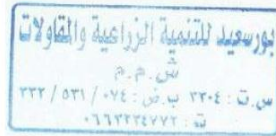 بورسعيد للتنمية الزراعية والمقاولات
ش.م.م
س.ت: ٣٣٠٤ ب.ض: ٠٧٤ / ٥٣١ / ٣٣٣
ت: ٠٦٦٣٣٣٤٧٧٣